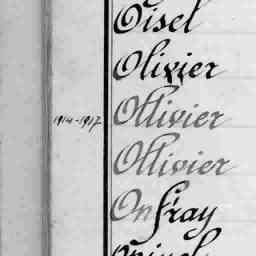 Oisel
Olivier
1914-1917 Ollivier
Ollivier
Onfray